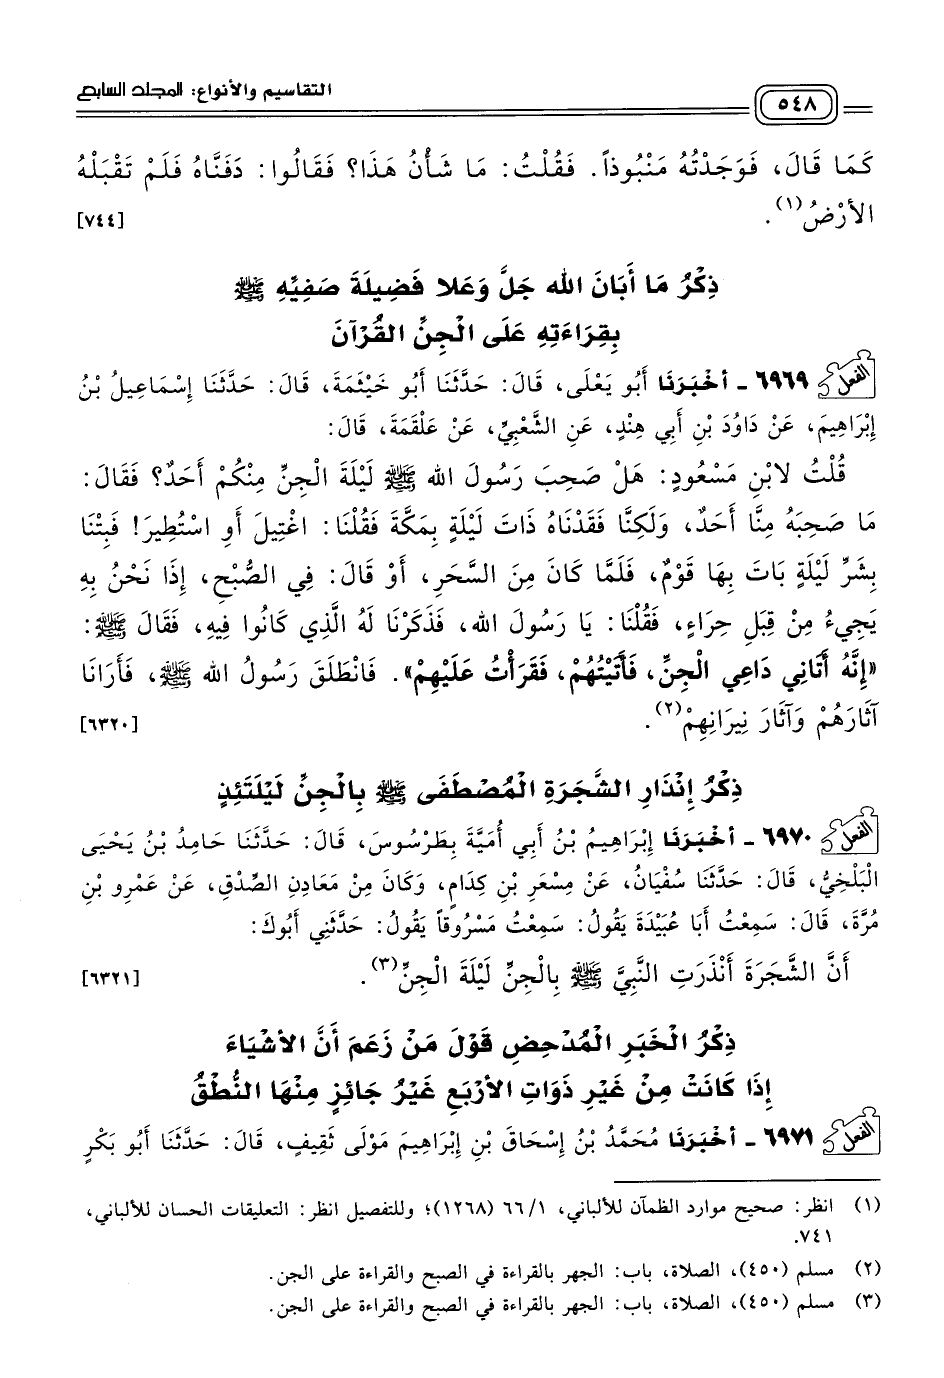 ٥٤٨ التقاسيم والأنواع: المجلد السابع
كَمَا قَالَ، فَوَجَدْتُهُ مَنْبُوذاً. فَقُلْتُ: مَا شَأْنُ هَذَا؟ فَقَالُوا: دَفَنَّاهُ فَلَمْ تَقْبَلْهُ
الأَرْضُ(١). [٧٤٤]
ذِكْرُ مَا أَبَانَ الله جَلَّ وَعَلا فَضِيلَةَ صَفِيِّهِ ﷺ
بِقِرَاءَتِهِ عَلَى الْجِنِّ القُرْآنَ
الفعل ٦٩٦٩ ـ أَخْبَرَنَا أَبُو يَعْلَى، قَالَ: حَدَّثَنَا أَبُو خَيْثَمَةَ، قَالَ: حَدَّثَنَا إِسْمَاعِيلُ بْنُ
إِبْرَاهِيمَ، عَنْ دَاوُدَ بْنِ أَبِي هِنْدٍ، عَنِ الشَّعْبِيِّ، عَنْ عَلْقَمَةَ، قَالَ:
قُلْتُ لابْنِ مَسْعُودٍ: هَلْ صَحِبَ رَسُولَ الله ﷺ لَيْلَةَ الْجِنِّ مِنْكُمْ أَحَدٌ؟ فَقَالَ:
مَا صَحِبَهُ مِنَّا أَحَدٌ، وَلَكِنَّا فَقَدْنَاهُ ذَاتَ لَيْلَةٍ بِمَكَّةَ فَقُلْنَا: اغْتِيلَ أَوِ اسْتُطِيرَ! فَبِتْنَا
بِشَرِّ لَيْلَةٍ بَاتَ بِهَا قَوْمٌ، فَلَمَّا كَانَ مِنَ السَّحَرِ، أَوْ قَالَ: فِي الصُّبْحِ، إِذَا نَحْنُ بِهِ
يَجِيءُ مِنْ قِبَلِ حِرَاءٍ، فَقُلْنَا: يَا رَسُولَ الله، فَذَكَرْنَا لَهُ الَّذِي كَانُوا فِيهِ، فَقَالَ ﷺ:
«إِنَّهُ أَتَانِي دَاعِي الْجِنِّ، فَأَتَيْتُهُمْ، فَقَرَأْتُ عَلَيْهِمْ». فَانْطَلَقَ رَسُولُ الله ﷺ، فَأَرَانَا
آثَارَهُمْ وَآثَارَ نِيرَانِهِمْ(٢). [٦٣٢٠]
ذِكْرُ إِنْذَارِ الشَّجَرَةِ الْمُصْطَفَى ﷺ بِالْجِنِّ لَيْلَتَئِذٍ
الفعل ٦٩٧٠ ـ أَخْبَرَنَا إِبْرَاهِيمُ بْنُ أَبِي أُمَيَّةَ بِطَرْسُوسَ، قَالَ: حَدَّثَنَا حَامِدُ بْنُ يَحْيَى
الْبَلْخِيُّ، قَالَ: حَدَّثَنَا سُفْيَانُ، عَنْ مِسْعَرِ بْنِ كِدَامٍ، وَكَانَ مِنْ مَعَادِنِ الصِّدْقِ، عَنْ عَمْرِو بْنِ
مُرَّةَ، قَالَ: سَمِعْتُ أَبَا عُبَيْدَةَ يَقُولُ: سَمِعْتُ مَسْرُوقاً يَقُولُ: حَدَّثَنِي أَبُوكَ:
أَنَّ الشَّجَرَةَ أَنْذَرَتِ النَّبِيَّ ﷺ بِالْجِنِّ لَيْلَةَ الْجِنِّ(٣). [٦٣٢١]
ذِكْرُ الْخَبَرِ الْمُدْحِضِ قَوْلَ مَنْ زَعَمَ أَنَّ الأَشْيَاءَ
إِذَا كَانَتْ مِنْ غَيْرِ ذَوَاتِ الأَرْبَعِ غَيْرُ جَائِزٍ مِنْهَا النُّطْقُ
الفعل ٦٩٧١ ـ أَخْبَرَنَا مُحَمَّدُ بْنُ إِسْحَاقَ بْنِ إِبْرَاهِيمَ مَوْلَى ثَقِيفٍ، قَالَ: حَدَّثَنَا أَبُو بَكْرٍ
(١) انظر: صحيح موارد الظمآن للألباني، ١/ ٦٦ (١٢٦٨)؛ وللتفصيل انظر: التعليقات الحسان للألباني،
٧٤١.
(٢) مسلم (٤٥٠)، الصلاة، باب: الجهر بالقراءة في الصبح والقراءة على الجن.
(٣) مسلم (٤٥٠)، الصلاة، باب: الجهر بالقراءة في الصبح والقراءة على الجن.